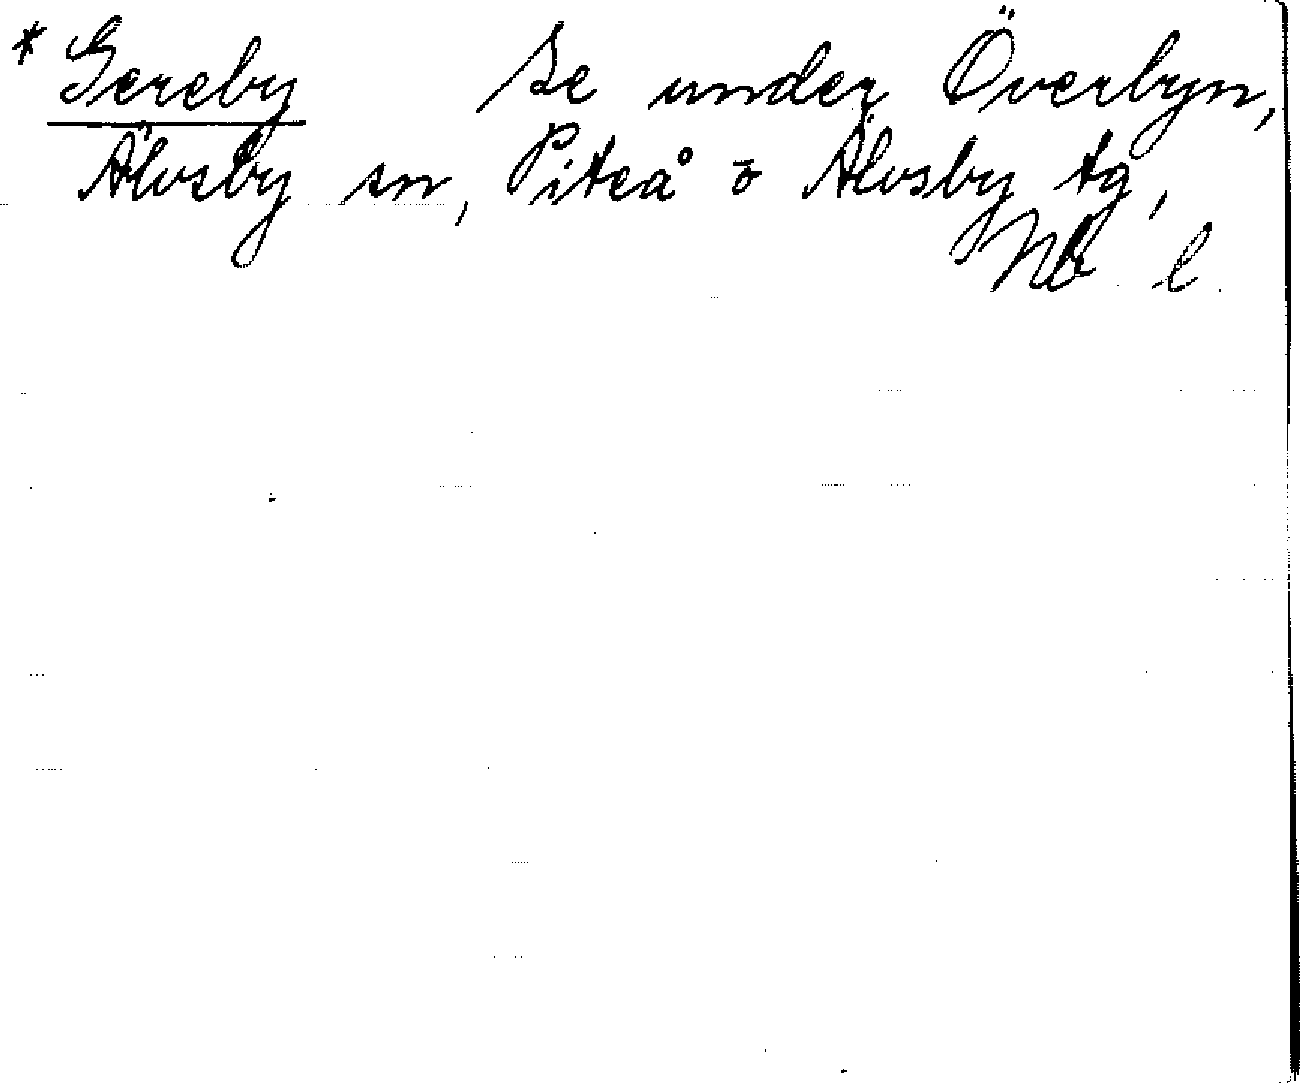 * Gereby Se under Överbyn,
Älvsby sn, Piteå o Älvsby tg,
Nb l.